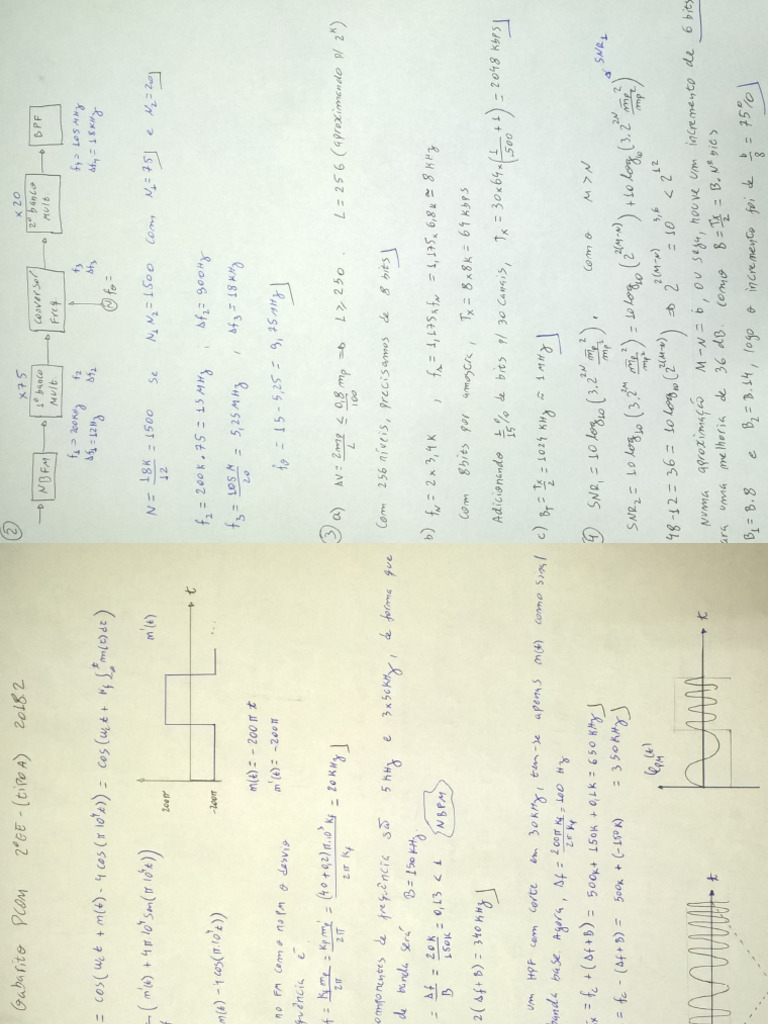 Gabarito PCOM 2ºEE - (TIPO A) 2018.2
= cos(ωct + m(t) - 4cos(π10⁴t)) = cos(ωct + Kf∫m(t)dt)
(m'(t) + 4π10⁴sen(π10⁴t))
m'(t)
200π
-200π
t
...
m(t) - 4cos(π10⁴t))
m(t) = -200πt
m'(t) = -200π
no FM como no PM o desvio
quência é
f = Kf mp/2π = Kp m'p/2π = (40+0,2)π.10³ Kf/2π Kf = 20KHz
componentes de frequência são 5KHz e 3x50KHz, de forma que
de banda será B = 150KHz
= Δf/B = 20K/150K = 0,13 < 1 NBPM
2(Δf+B) = 340KHz
um HPF com corte em 30KHz, tem-se apenas m(t) como sinal
banda base. Agora, Δf = 200π Kf/2π Kf = 100 Hz
fc + (Δf+B) = 500K + 150K + 0,1K = 650KHz
= fc - (Δf+B) = 500K + (-150K) = 350KHz
φPM(t)
t
t
②
NBFM
x75
1º banco mult.
Conversor Freq.
x20
2º banco mult.
BPF
f1 = 200KHz
Δf1 = 12Hz
f2
Δf2
f3
Δf3
f4 = 105MHz
Δf4 = 18KHz
fo =
N = 18K/12 = 1500 se N1N2 = 1500 com N1 = 75 e N2 = 20
f2 = 200K.75 = 15MHz, Δf2 = 900Hz
f3 = 105M/20 = 5,25MHz, Δf3 = 18KHz
fo = 15 - 5,25 = 9,75MHz
③ a) ΔV = 2mp/L ≤ 0,8mp/100 ⇒ L ≥ 250. L = 256 (aproximando p/ 2ᴷ)
Com 256 níveis, precisamos de 8 bits
b) fN = 2x3,4K, fA = 1,175xfN = 1,175x6,8K ≅ 8KHz
Com 8bits por amostra, Tx = 8x8K = 64Kbps
Adicionando de bits p/ 30 canais, Tx = 30x64x(1/500 + 1) = 2048Kbps
c) BT = Tx/2 = 1024KHz ≅ 1MHz
④ SNR1 = 10log10(3.2²ᴺ m̄p²/mp²), com M > N
SNR2 = 10log10(3.2²ᴹ m̄p²/mp²) = 10log10(2²⁽ᴹ⁻ᴺ⁾) + 10log10(3.2²ᴺ m̄p²/mp²) SNR1
48-12 = 36 = 10log10(2²⁽ᴹ⁻ᴺ⁾) ⇒ 2²⁽ᴹ⁻ᴺ⁾ = 10³·⁶ < 2¹²
Numa aproximação M-N = 6, ou seja, houve um incremento de 6 bits
ara uma melhoria de 36 dB. como B = Tx/2 = B.Nº bits
B1 = B.8 e B2 = B.14, logo o incremento foi de 6/8 = 75%